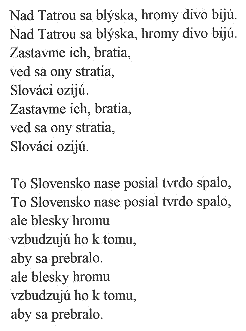 Nad Tatrou sa blýska, hromy divo bijú.
Nad Tatrou sa blýska, hromy divo bijú.
Zastavme ich, bratia,
ved sa ony stratia,
Slováci ozijú.
Zastavme ich, bratia,
ved sa ony stratia,
Slováci ozijú.

To Slovensko nase posial tvrdo spalo,
To Slovensko nase posial tvrdo spalo,
ale blesky hromu
vzbudzujú ho k tomu,
aby sa prebralo.
ale blesky hromu
vzbudzujú ho k tomu,
aby sa prebralo.